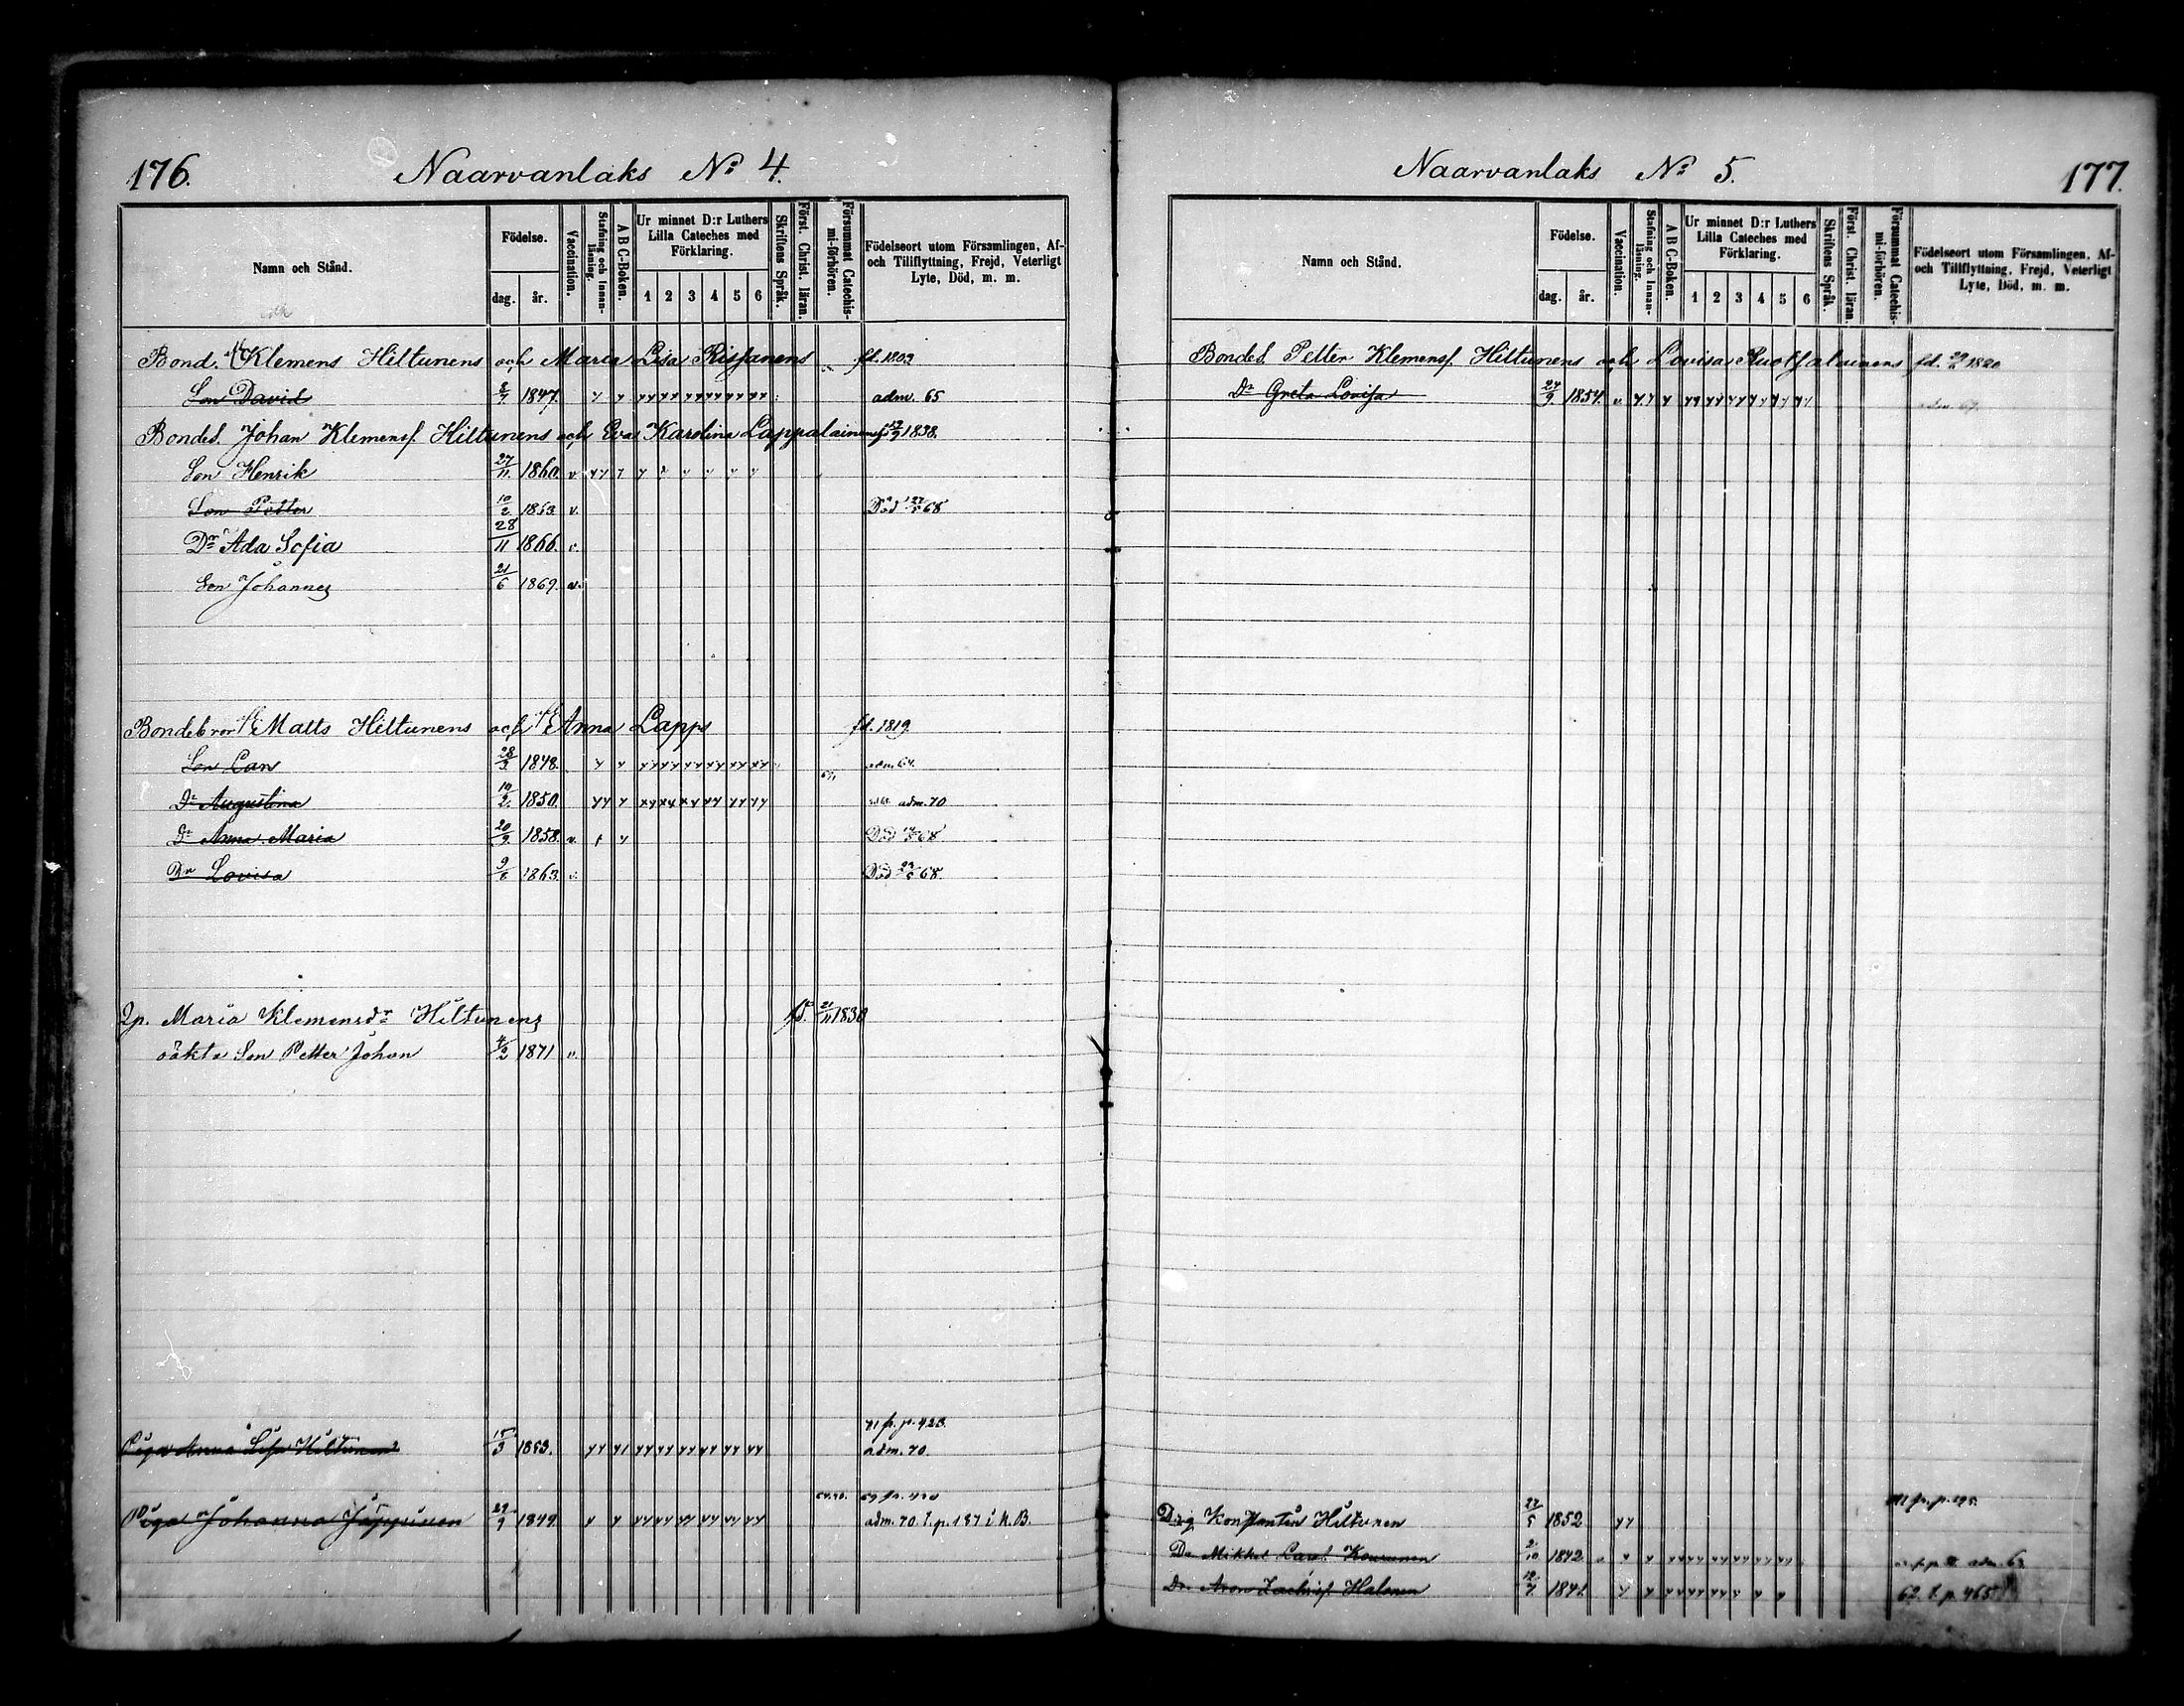 176.
Naarvanlaks No 4.
Namn och Stånd.
Födelse.
dag. år.
Vaccination.
Stafning och Innan-läsning.
A B C-Boken.
Ur minnet D:r Luthers Lilla Cateches med Förklaring.
1 2 3 4 5 6
Skriftens Språk.
Först. Christ. läran.
Försummat Catechis-mi-förhören.
Födelseort utom Församlingen, Af- och Tillflyttning, Frejd, Veterligt Lyte, Död, m. m.
Bond. Klemens Hiltunens och Maria Lisa Rissanens fd. 1803
Son David 1847. adm. 65
Bondes. Johan Klemenss. Hiltunens och Eva Karolina Lappalainens 1838.
Son Henrik 27/11 1860. v
Son Petter 10/2 1863 v. Död 68
Dr Ada Sofia 28/11 1866. v.
Son Johannes 21/6 1869. v.
Bondebror Matts Hiltunens och Anna Lapps fd. 1819.
Son Lars 28/3 1848. adm 64.
Dr Augustina 10/2 1850. adm. 70
Dr Anna Maria 20/9 1858. v. Död 68
Dr Lovisa 1863. v. Död 68.
Qp. Maria Klemensdr Hiltunens fd. 21/11 1830
oäkta Son Petter Johan 4/2 1871 v.
71 fr. p. 423.
Piga Anna Lisa Hiltunen 15/3 1853. adm. 70.
Piga Johanna Jäppinen 29/9 1849. adm. 70. t. p. 187 i K. B.
177.
Naarvanlaks No 5.
Namn och Stånd.
Födelse.
dag. år.
Vaccination.
Stafning och Innan-läsning.
A B C-Boken.
Ur minnet D:r Luthers Lilla Cateches med Förklaring.
1 2 3 4 5 6
Skriftens Språk.
Först. Christ. läran.
Försummat Catechis-mi-förhören.
Födelseort utom Församlingen, Af- och Tillflyttning, Frejd, Veterligt Lyte, Död, m. m.
Bondes. Petter Klemenss. Hiltunens och Lovisa Ruotsalainens fd. 1820
Dr Greta Lovisa 24/9 1854. v. adm. 67.
Drg Konstantin Hiltunen 27/5 1852
Do Mikkel 2/10 1842.
Dr. Aron Zachriss. Halonen 1841. 62. t. p. 465